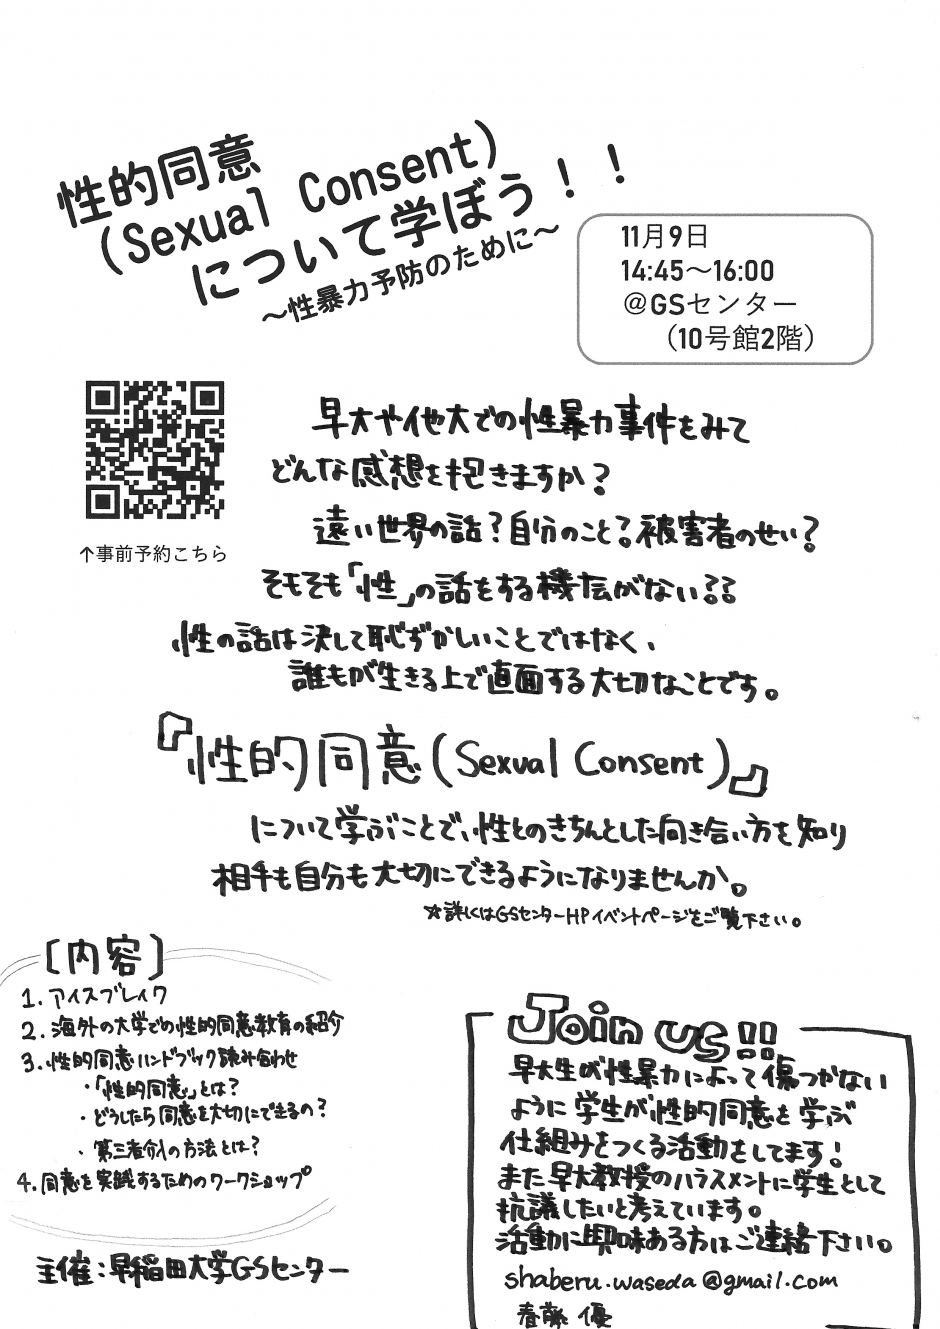 性的同意
(Sexual Consent)
について学ぼう！！
～性暴力予防のために～
11月9日
14:45～16:00
@GSセンター
（10号館2階）
↑事前予約こちら
早大や他大での性暴力事件をみて
どんな感想を抱きますか？
遠い世界の話？自分のこと？被害者のせい？
そもそも「性」の話をする機会がない？？
性の話は決して恥ずかしいことではなく、
誰もが生きる上で直面する大切なことです。
『性的同意(Sexual Consent)』
について学ぶことで、性とのきちんとした向き合い方を知り
相手も自分も大切にできるようになりませんか。
☆詳しくはGSセンターHPイベントページをご覧下さい。
[内容]
1. アイスブレイク
2. 海外の大学での性的同意教育の紹介
3. 性的同意ハンドブック読み合わせ
・「性的同意」とは？
・どうしたら同意を大切にできるの？
・第三者介入の方法とは？
4. 同意を実践するためのワークショップ
主催：早稲田大学GSセンター
Join us!!
早大生が性暴力によって傷つかない
ように学生が性的同意を学ぶ
仕組みをつくる活動をしてます！
また早大教授のハラスメントに学生として
抗議したいと考えています。
活動に興味ある方はご連絡下さい。
shaberu.waseda@gmail.com
春藤 優